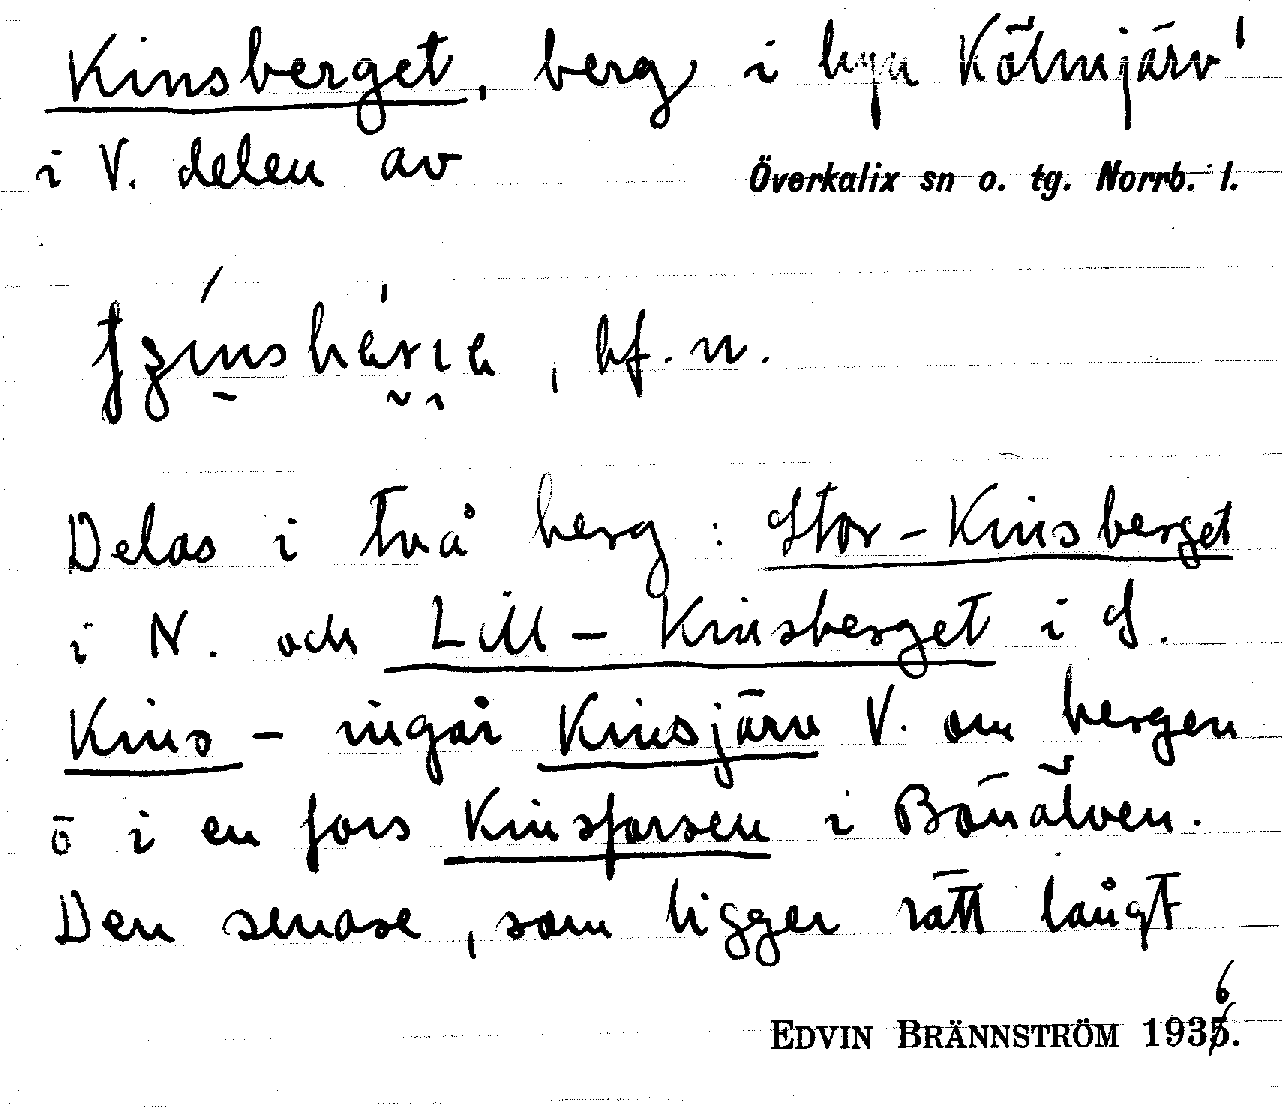 Kinsberget, berg i bya Kölmjärv
i V. delen av Överkalix sn o. tg. Norrb. l.
, bf. n.
Delas i två berg: Stor-Kinsberget
i N. och Lill-Kinsberget i S.
Kins- ingår Kinsjärv V. om bergen
o i en fors Kinsforsen i Bönälven.
Den senare, som ligger rätt långt
EDVIN BRÄNNSTRÖM 1936.